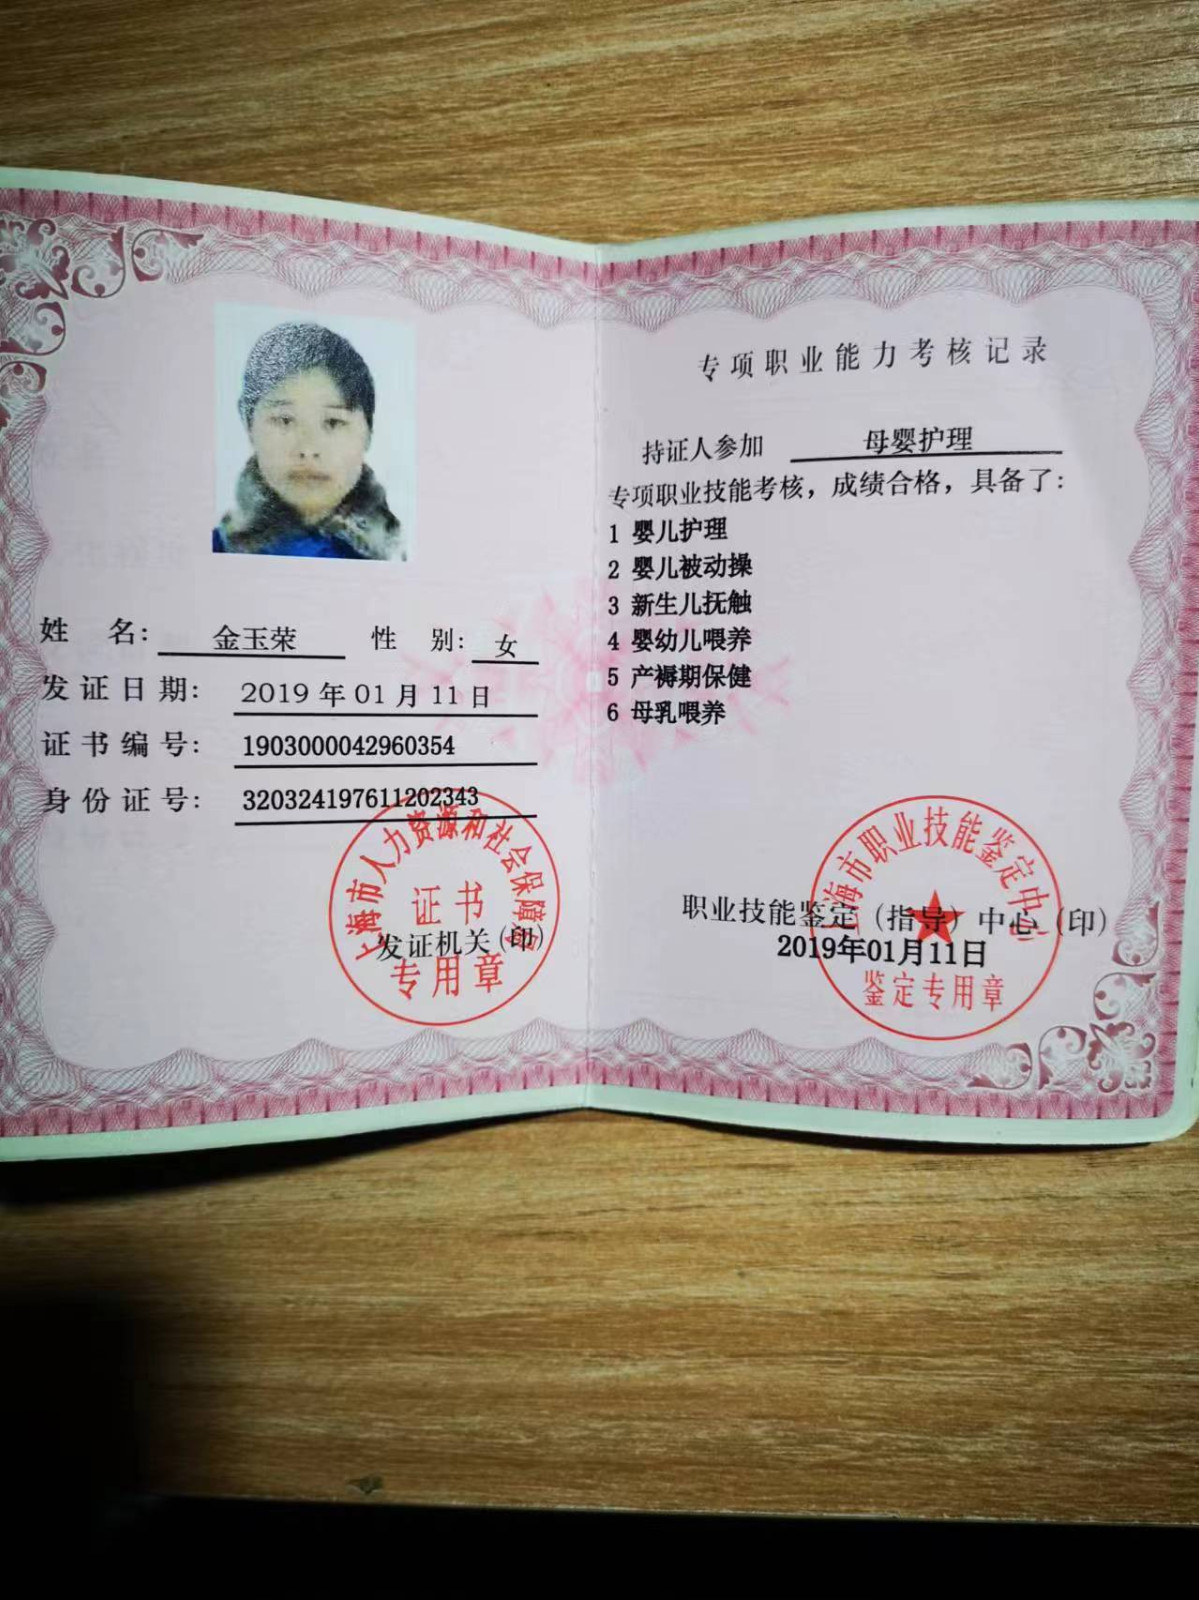 姓 名: 金玉荣 性 别: 女
发证日期: 2019 年 01 月 11 日
证书编号: 1903000042960354
身份证号: 320324197611202343
上海市人力资源和社会保障局
证书
发证机关(印)
专用章
专项职业能力考核记录
持证人参加 母婴护理
专项职业技能考核，成绩合格，具备了:
1 婴儿护理
2 婴儿被动操
3 新生儿抚触
4 婴幼儿喂养
5 产褥期保健
6 母乳喂养
上海市职业技能鉴定中心
职业技能鉴定（指导）中心（印）
2019年01月11日
鉴定专用章